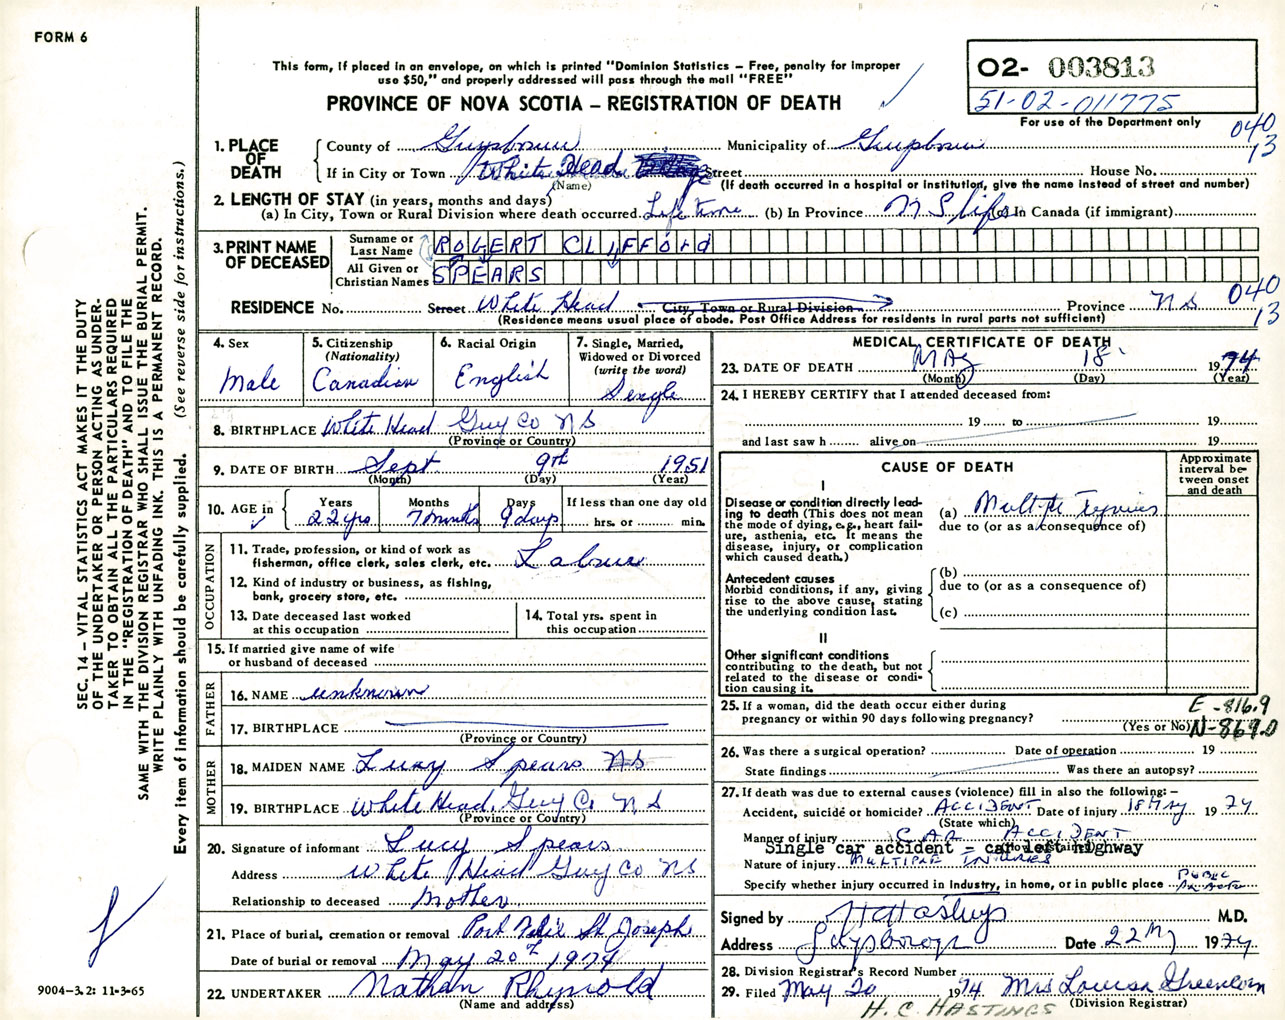 FORM 6
This form, if placed in an envelope, on which is printed "Dominion Statistics – Free, penalty for improper
use $50," and properly addressed will pass through the mail "FREE"
PROVINCE OF NOVA SCOTIA – REGISTRATION OF DEATH
02- 003813
51-02-011775
For use of the Department only
040
13
1. PLACE OF DEATH
County of Guysboro Municipality of Guysboro
If in City or Town White Head Street House No.
(Name) (If death occurred in a hospital or institution, give the name instead of street and number)
2. LENGTH OF STAY (in years, months and days)
(a) In City, Town or Rural Division where death occurred Life time (b) In Province N S life (c) In Canada (if immigrant)
3. PRINT NAME OF DECEASED
Surname or Last Name ROGERT CLIFFOrd
All Given or Christian Names SPEARS
040
13
RESIDENCE No. Street White Head City, Town or Rural Division Province N S
(Residence means usual place of abode. Post Office Address for residents in rural parts not sufficient)
4. Sex
Male
5. Citizenship
(Nationality)
Canadian
6. Racial Origin
English
7. Single, Married,
Widowed or Divorced
(write the word)
Single
8. BIRTHPLACE White Head Guy Co N S
(Province or Country)
9. DATE OF BIRTH Sept 9th 1951
(Month) (Day) (Year)
10. AGE in
Years Months Days If less than one day old
22 yrs 7 months 9 days hrs. or min.
OCCUPATION
11. Trade, profession, or kind of work as
fisherman, office clerk, sales clerk, etc. Labour
12. Kind of industry or business, as fishing,
bank, grocery store, etc.
13. Date deceased last worked
at this occupation
14. Total yrs. spent in
this occupation
15. If married give name of wife
or husband of deceased
FATHER
16. NAME unknown
17. BIRTHPLACE
(Province or Country)
MOTHER
18. MAIDEN NAME Lucy Spears N S
19. BIRTHPLACE White Head, Guy Co. N S
(Province or Country)
20. Signature of informant Lucy Spears
Address White Head Guy Co NS
Relationship to deceased Mother
21. Place of burial, cremation or removal Port Felix St Joseph
Date of burial or removal May 20th 1974
22. UNDERTAKER Nathan Rhynold
(Name and address)
MEDICAL CERTIFICATE OF DEATH
23. DATE OF DEATH MAY 18 1974
(Month) (Day) (Year)
24. I HEREBY CERTIFY that I attended deceased from:
19 to 19
and last saw h alive on 19
CAUSE OF DEATH
Approximate interval between onset and death
I
Disease or condition directly leading to death (This does not mean the mode of dying, e.g., heart failure, asthenia, etc. It means the disease, injury, or complication which caused death.)
(a) Multiple Injuries
due to (or as a consequence of)
Antecedent causes
Morbid conditions, if any, giving rise to the above cause, stating the underlying condition last.
(b)
due to (or as a consequence of)
(c)
II
Other significant conditions
contributing to the death, but not related to the disease or condition causing it.
25. If a woman, did the death occur either during
pregnancy or within 90 days following pregnancy?
(Yes or No)
E -816.9
N-869.0
26. Was there a surgical operation? Date of operation 19
State findings Was there an autopsy?
27. If death was due to external causes (violence) fill in also the following: –
Accident, suicide or homicide? ACCIDENT Date of injury 18 May 1974
(State which)
Manner of injury CAR ACCIDENT
(How sustained)
Single car accident – car left highway
Nature of injury MULTIPLE INJURIES
Specify whether injury occurred in industry, in home, or in public place PUBLIC
Signed by H C Hastings M.D.
Address Guysborough Date 22 My 1974
28. Division Registrar's Record Number
29. Filed May 20 1974 Mrs Louisa Greencorn
(Division Registrar)
H. C. HASTINGS
SEC. 14 – VITAL STATISTICS ACT MAKES IT THE DUTY
OF THE UNDERTAKER OR PERSON ACTING AS UNDER-
TAKER TO OBTAIN ALL THE PARTICULARS REQUIRED
IN THE "REGISTRATION OF DEATH" AND TO FILE THE
SAME WITH THE DIVISION REGISTRAR WHO SHALL ISSUE THE BURIAL PERMIT.
WRITE PLAINLY WITH UNFADING INK. THIS IS A PERMANENT RECORD.
Every item of information should be carefully supplied. (See reverse side for instructions.)
9004-3.2: 11-3-65